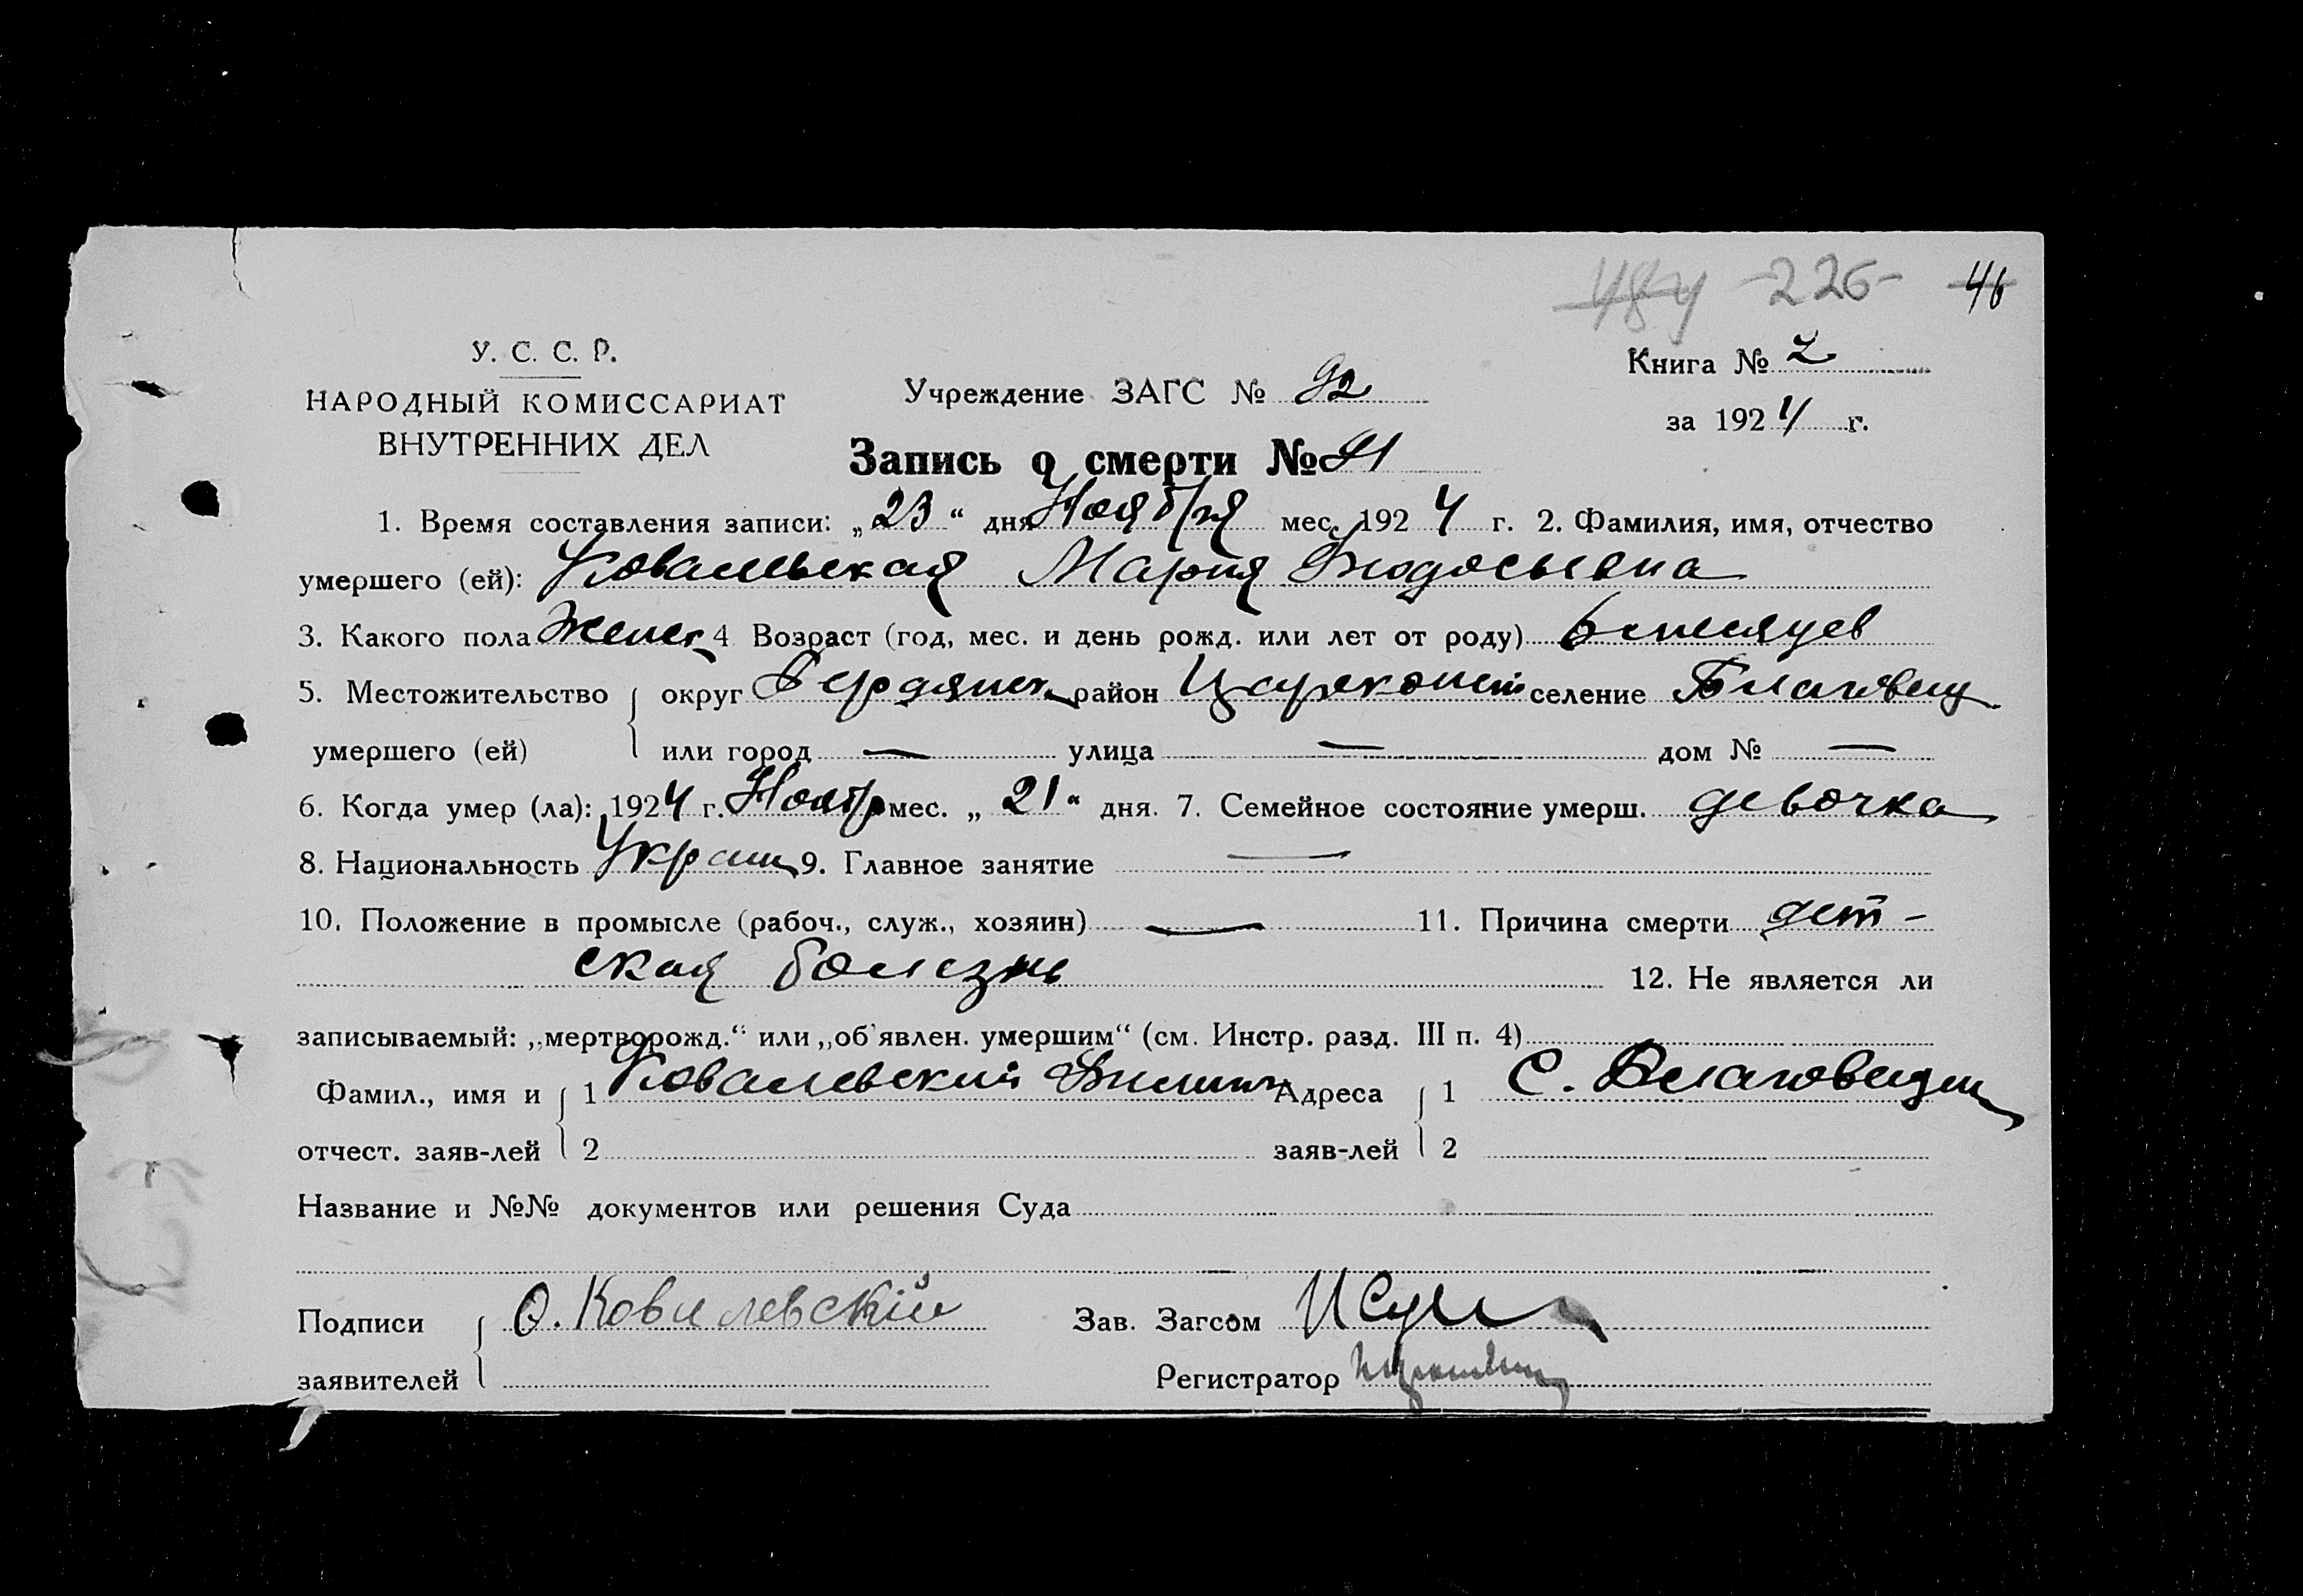 484 -226- 46
У. С. С. Р.
НАРОДНЫЙ КОМИССАРИАТ
ВНУТРЕННИХ ДЕЛ
Учреждение ЗАГС № 92
Книга № 2
за 1924 г.
Запись о смерти № 91
1. Время составления записи: „23“ дня Ноября мес. 1924 г. 2. Фамилия, имя, отчество
умершего (ей): Ковалевская Мария Феодосьевна
3. Какого пола женск 4 Возраст (год, мес. и день рожд. или лет от роду) 6 месяцев
5. Местожительство округ Бердянск район Цареконст селение Благовещ
умершего (ей) или город — улица — дом № —
6. Когда умер (ла): 1924 г. Ноябр мес. „21“ дня. 7. Семейное состояние умерш. девочка
8. Национальность Украин 9. Главное занятие —
10. Положение в промысле (рабоч., служ., хозяин) — 11. Причина смерти дет-
ская болезнь 12. Не является ли
записываемый: „мертворожд.“ или „об'явлен. умершим“ (см. Инстр. разд. III п. 4)
Фамил., имя и 1 Ковалевский Адреса 1 С. Благовещен
отчест. заяв-лей 2 заяв-лей 2
Название и №№ документов или решения Суда
Подписи О. Ковалевскій Зав. Загсом
заявителей Регистратор